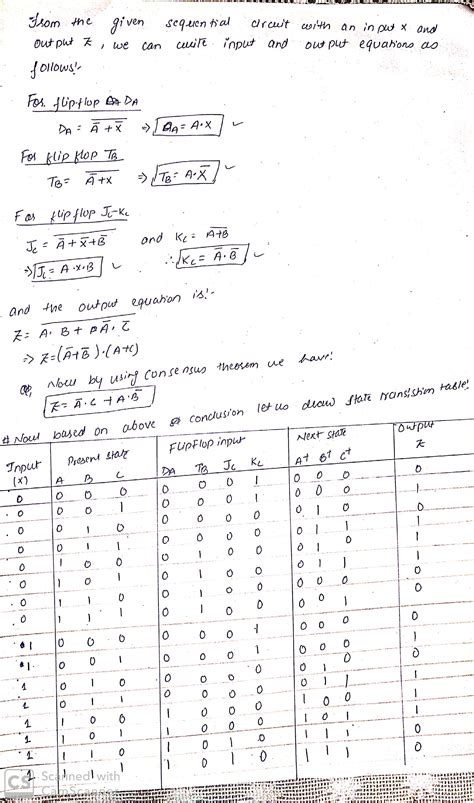 From the given sequential circuit with an input x and
output Z, we can write input and output equations as
follows:-
For flipflop DA
DA = Ā + x̄ ⇒ DA = A·X
For flip flop TB
TB = Ā+x ⇒ TB = A·X̄
For flip flop Jc-Kc
Jc = Ā + x̄ + B̄ and Kc = A+B
⇒ Jc = A·x·B ∴ Kc = Ā·B̄
and the output equation is:-
Z = A·B + Ā·C̄
⇒ Z = (Ā+B̄)·(A+C)
Now by using Consensus theorem we have:
Z = Ā·C + A·B̄
# Now based on above conclusion let us draw state transistion table:
Input (x) Present state FlipFlop input Next state Output
A B C DA TB Jc Kc A+ B+ C+ Z
0 0 0 0 0 0 0 1 0 0 0 0
0 0 0 1 0 0 0 1 0 0 0 1
0 0 1 0 0 0 0 0 0 1 0 0
0 0 1 1 0 0 0 0 0 1 1 1
0 1 0 0 0 1 0 0 0 1 0 1
0 1 0 1 0 1 0 0 0 1 1 1
0 1 1 0 0 1 0 0 0 0 0 0
0 1 1 1 0 1 0 0 0 0 1 0
1 0 0 0 0 0 0 1 0 0 0 0
1 0 0 1 0 0 0 1 0 0 0 1
1 0 1 0 0 0 0 0 0 1 0 0
1 0 1 1 0 0 0 0 0 1 1 1
1 1 0 0 1 0 0 0 1 0 0 1
1 1 0 1 1 0 0 0 1 0 1 1
1 1 1 0 1 0 1 0 1 1 1 0
1 1 1 1 1 0 1 0 1 1 1 0
CS Scanned with
CamScanner